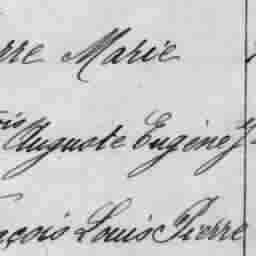 rre Marie
ois Auguste Eugène J
nçois Louis Pierre